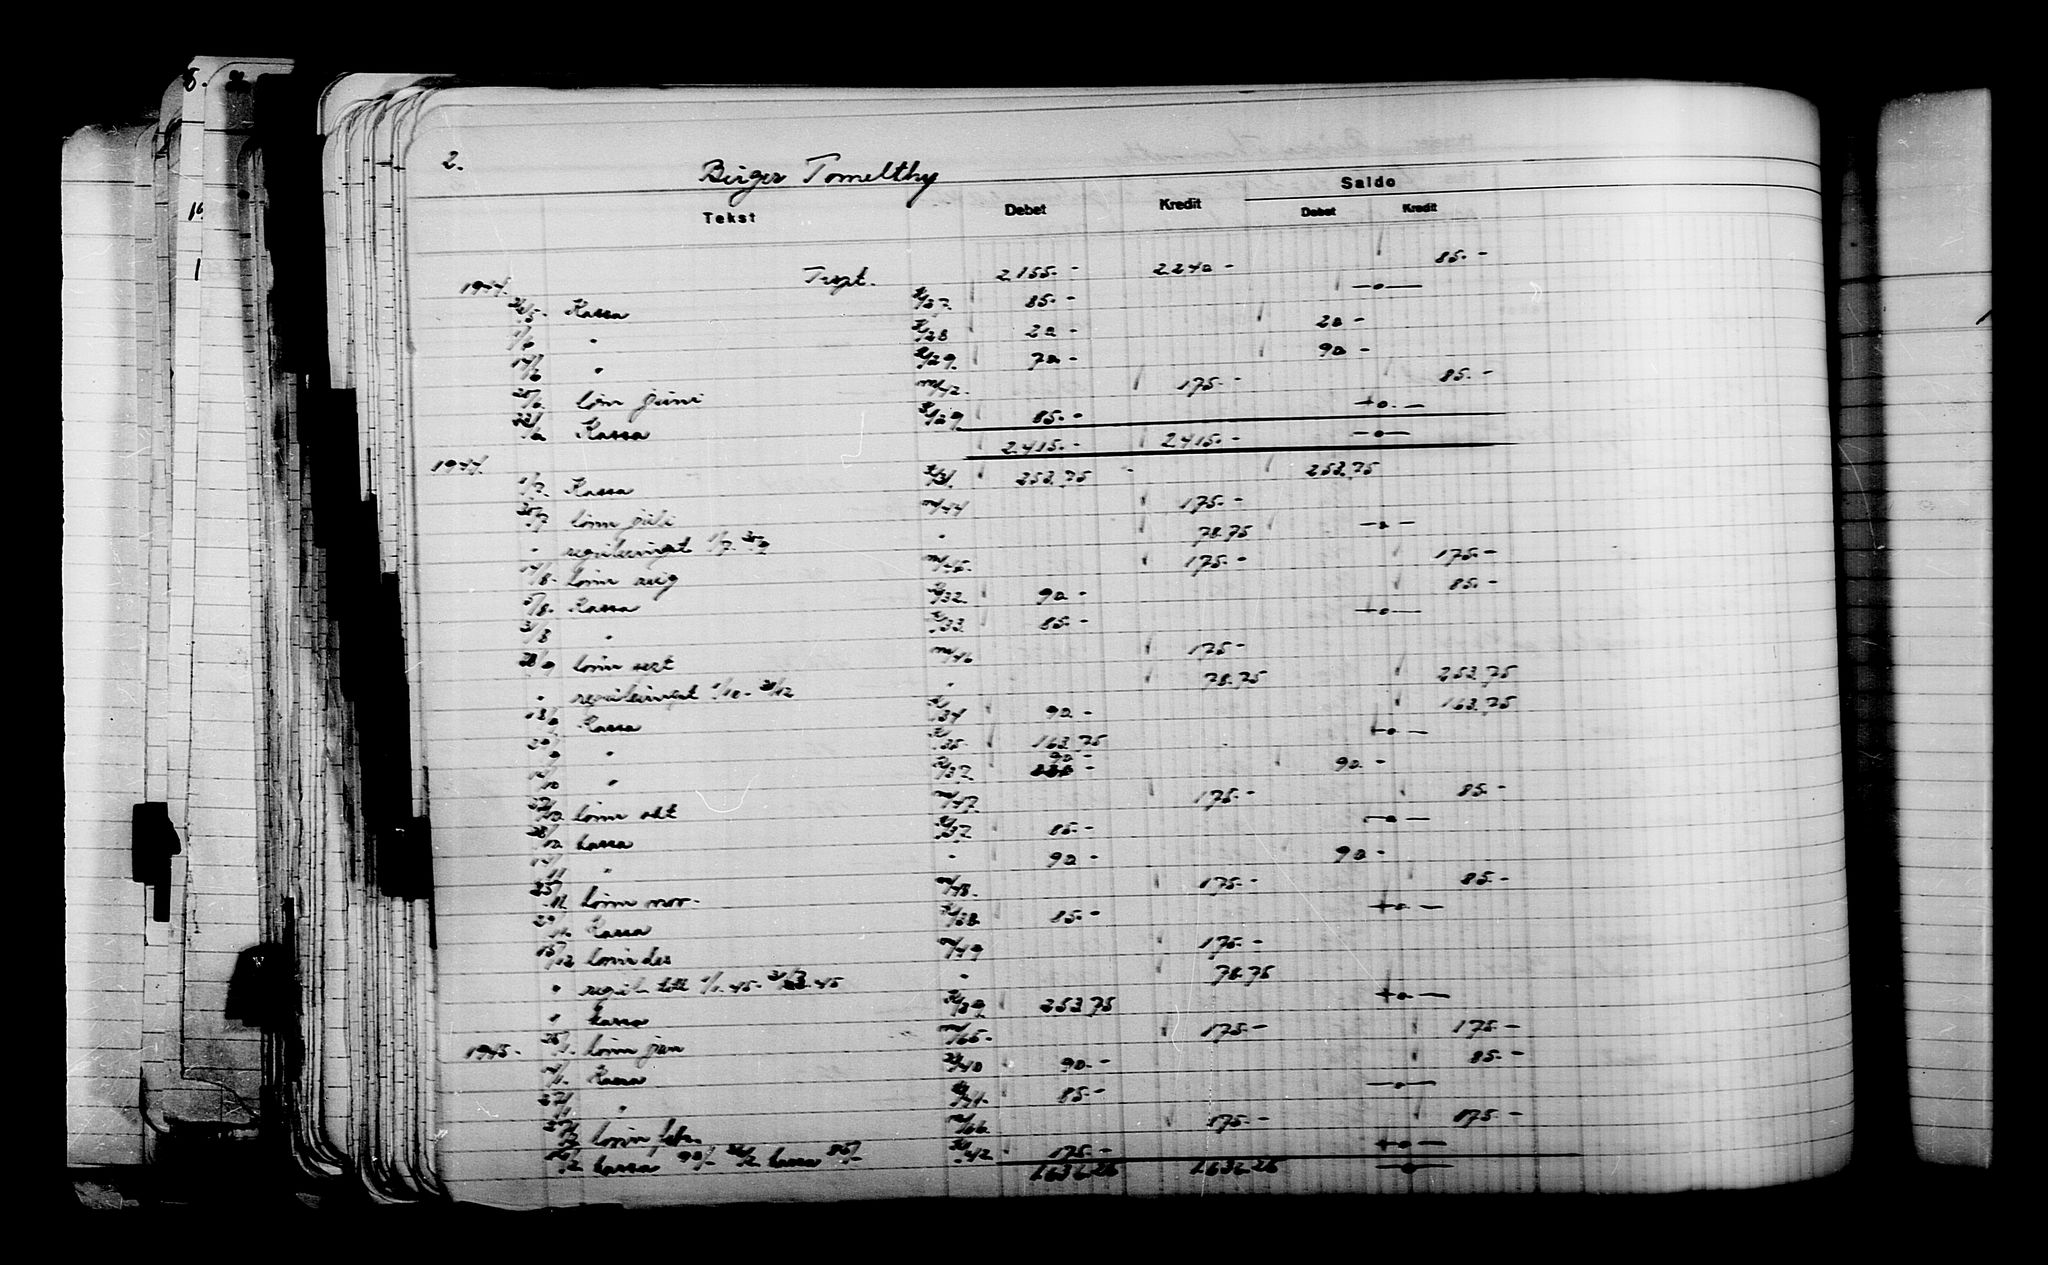 2. Birger Tomelthy
Saldo
Tekst Debet Kredit Debet Kredit
Trspt. 2155.- 2240.- 85.-
1944. 31/5. Kassa K/27. 85.- —o—
1/6 " K/28 20.- 20.-
14/6 " K/29. 70.- 90.-
25/6 lönn juni m/42. 175.- 85.-
Kassa K/29 85.- —o—
2.415.- 2.415.- —o—
1944. 1/7. Kassa K/31. 253,75 253,75
25/7 lönn juli m/44 175.-
" reguleringst 1/7. 30/9 " 78.75 —o—
14/8. lönn aug m/45. 175.- 175.-
5/8. Kassa K/32. 90.- 85.-
31/8 " K/33. 85.- —o—
28/9 lönn sept m/46 175.-
" reguleringst 1/10 - 31/12 " 78.75 253,75
13/9 Kassa K/34 90.- 163,75
29/9 " K/35. 163,75 —o—
14/10 " K/37. 90.- 90.-
27/10. lönn okt m/47. 175.- 85.-
28/10 kassa K/37. 85.- —o—
14/11 " " 90.- 90.-
25/11. lönn nov. m/48. 175.- 85.-
29/11. Kassa K/38. 85.- —o—
15/12 lönn des m/49 175.-
" regul. till 1/1.45 - 31/3.45 " 78.75
" kassa K/39. 253,75 —o—
1945. 25/1. lönn jan m/65. 175.- 175.-
14/1. Kassa K/40 90.- 85.-
27/1 " K/41. 85.- —o—
lönn febr. m/66. 175.- 175.-
kassa 90/- kassa 85/- K/42 175.- —o—
1.636,25 1.636,25 —o—